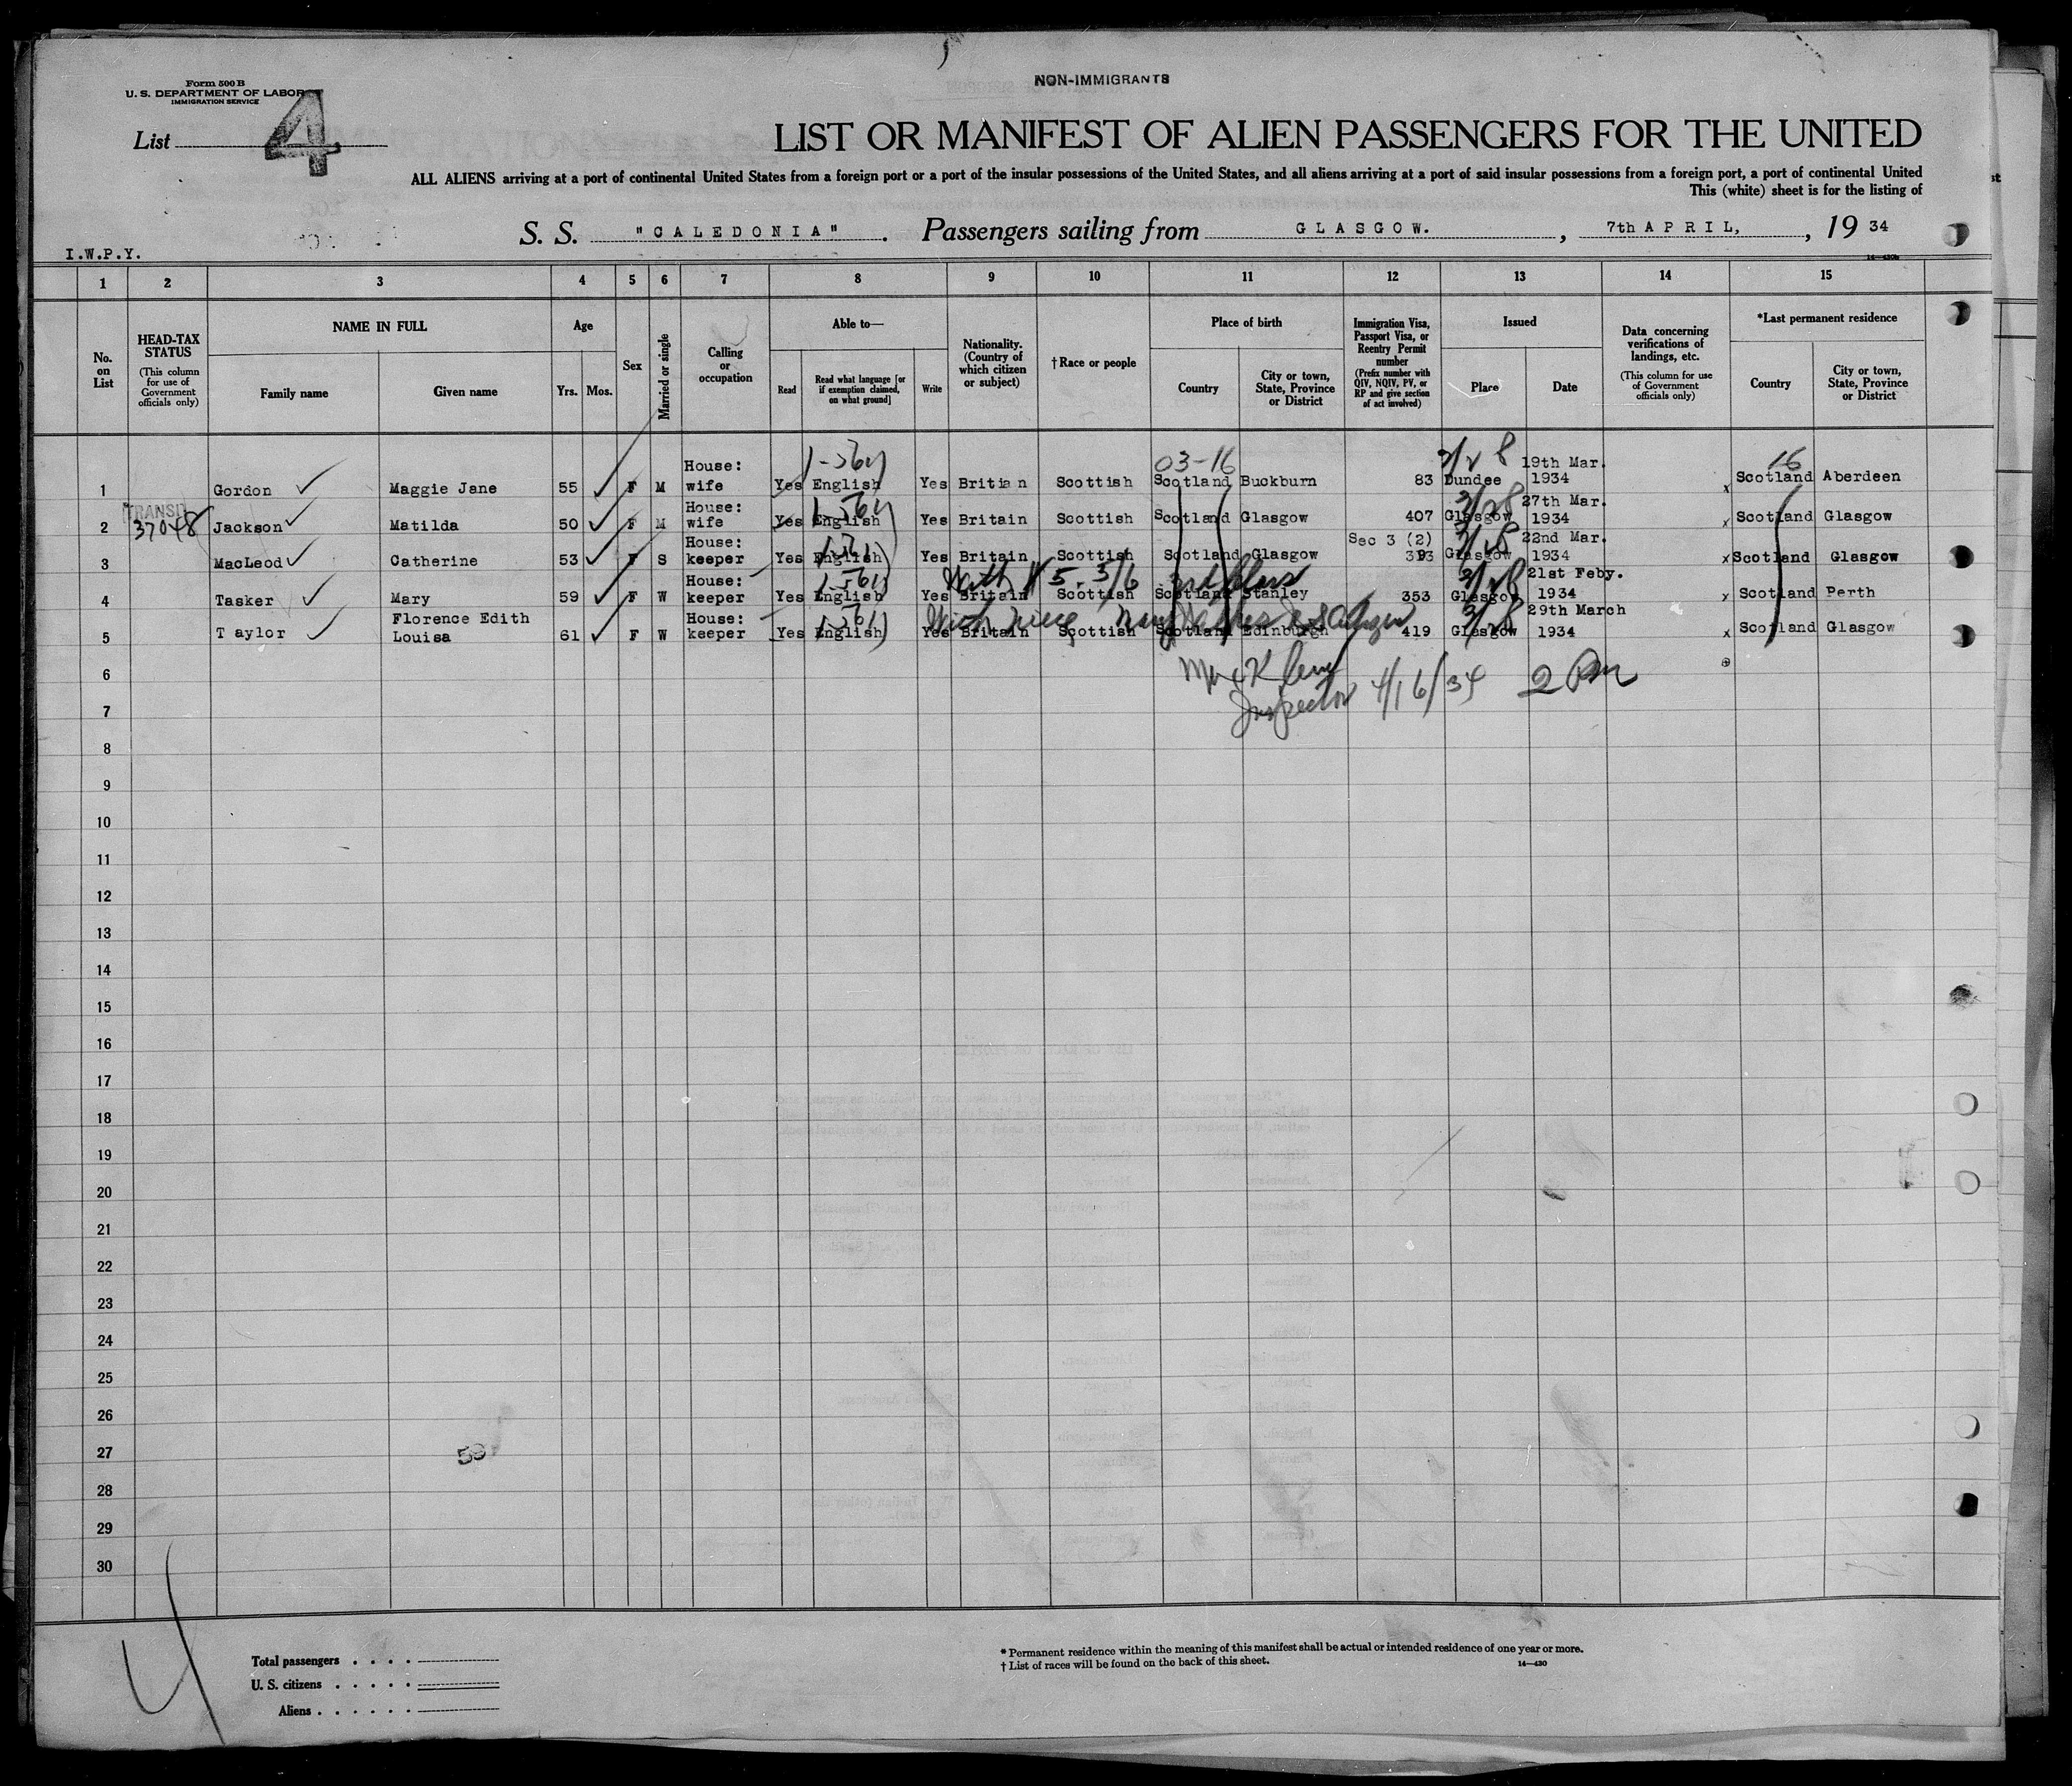 Form 500 B
U. S. DEPARTMENT OF LABOR
IMMIGRATION SERVICE
NON-IMMIGRANTS
List 4
LIST OR MANIFEST OF ALIEN PASSENGERS FOR THE UNITED
ALL ALIENS arriving at a port of continental United States from a foreign port or a port of the insular possessions of the United States, and all aliens arriving at a port of said insular possessions from a foreign port, a port of continental United
This (white) sheet is for the listing of
S. S. "CALEDONIA". Passengers sailing from GLASGOW. , 7th APRIL, , 19 34
I.W.P.Y.
14—430b
1 2 3 4 5 6 7 8 9 10 11 12 13 14 15
No. on List
HEAD-TAX STATUS
(This column for use of Government officials only)
NAME IN FULL
Family name
Given name
Age
Yrs. Mos.
Sex
Married or single
Calling or occupation
Able to—
Read
Read what language [or if exemption claimed, on what ground]
Write
Nationality. (Country of which citizen or subject)
† Race or people
Place of birth
Country
City or town, State, Province or District
Immigration Visa, Passport Visa, or Reentry Permit number
(Prefix number with QIV, NQIV, PV, or RP and give section of act involved)
Issued
Place
Date
Data concerning verifications of landings, etc.
(This column for use of Government officials only)
*Last permanent residence
Country
City or town, State, Province or District
03-16 16
1 Gordon Maggie Jane 55 F M House: wife Yes English Yes Britian Scottish Scotland Buckburn 83 Dundee 19th Mar. 1934 x Scotland Aberdeen
TRANSIT
37048
2 Jackson Matilda 50 F M House: wife Yes English Yes Britain Scottish Scotland Glasgow 407 Glasgow 27th Mar. 1934 x Scotland Glasgow
Sec 3 (2)
3 MacLeod Catherine 53 F S House: keeper Yes English Yes Britain Scottish Scotland Glasgow Glasgow 22nd Mar. 1934 x Scotland Glasgow
4 Tasker Mary 59 F W House: keeper Yes English Yes Britain Scottish Scotland Stanley 353 Glasgow 21st Feby. 1934 x Scotland Perth
5 Taylor Florence Edith Louisa 61 F W House: keeper Yes English Yes Britain Scottish Scotland Edinburgh 419 Glasgow 29th March 1934 x Scotland Glasgow
Inspector 4/16/34 2 PM
6
7
8
9
10
11
12
13
14
15
16
17
18
19
20
21
22
23
24
25
26
27
59
28
29
30
Total passengers . . . .
U. S. citizens . . . . .
Aliens . . . . . .
* Permanent residence within the meaning of this manifest shall be actual or intended residence of one year or more.
† List of races will be found on the back of this sheet.
14—430